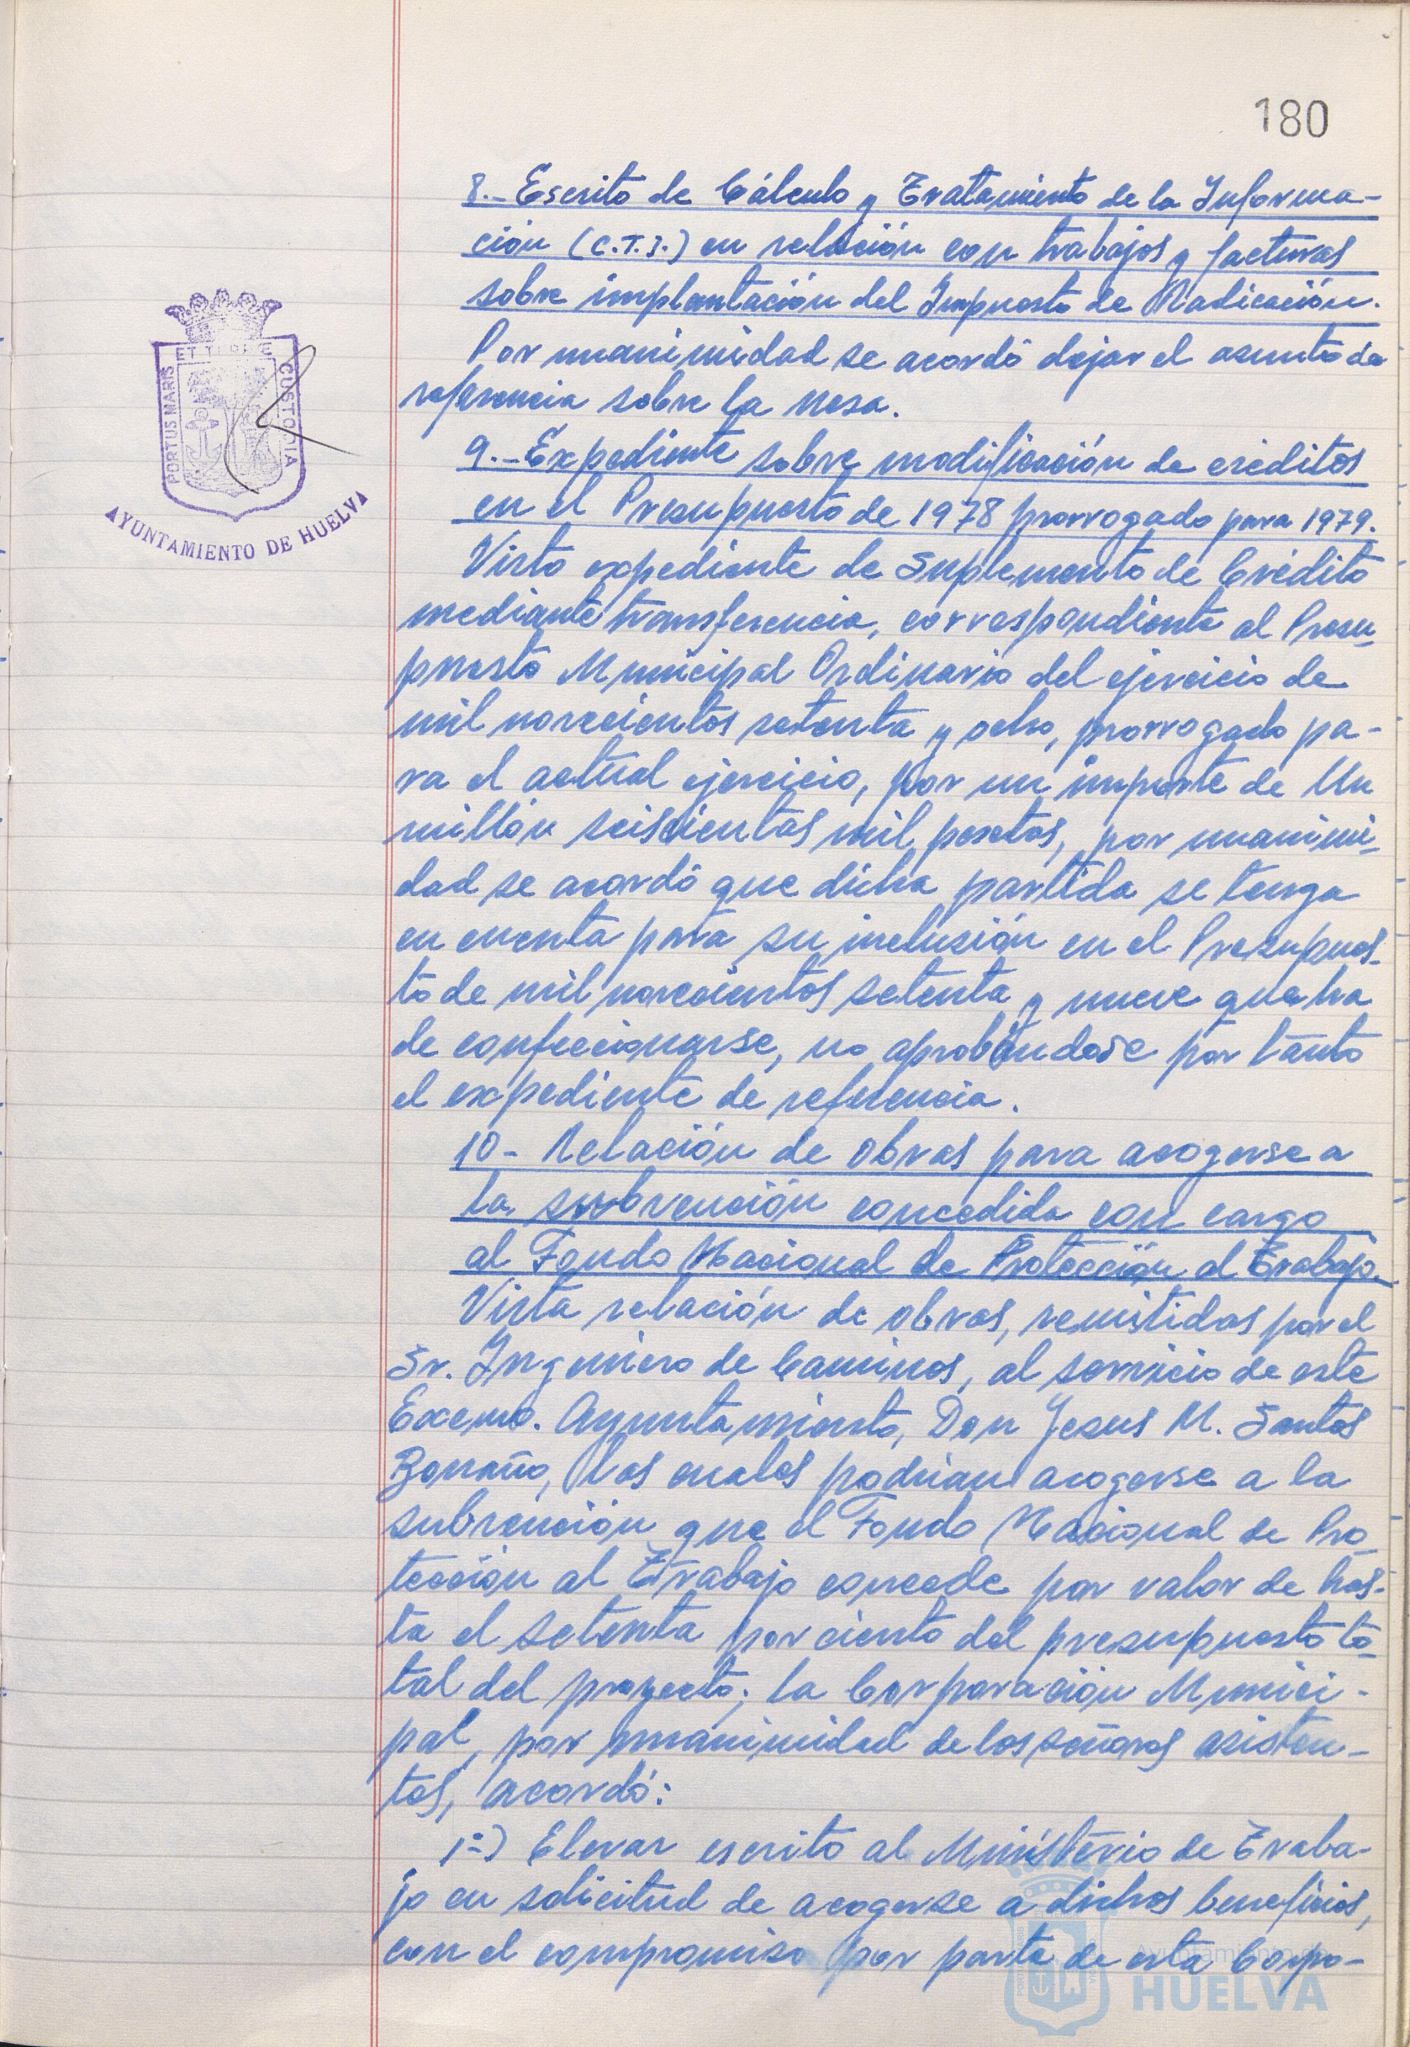 180
8.- Escrito de Cálculo y Tratamiento de la Informa-
ción (C.T.I.) en relación con trabajos y facturas
sobre implantación del Impuesto de Radicación.
Por unanimidad se acordó dejar el asunto de
referencia sobre la mesa.
9.- Expediente sobre modificación de créditos
en el Presupuesto de 1978 prorrogado para 1979.
Visto expediente de Suplemento de Crédito
mediante transferencia, correspondiente al Presu-
puesto Municipal Ordinario del ejercicio de
mil novecientos setenta y ocho, prorrogado pa-
ra el actual ejercicio, por un importe de Un
millón seiscientas mil pesetas, por unanimi-
dad se acordó que dicha partida se tenga
en cuenta para su inclusión en el Presupues-
to de mil novecientos setenta y nueve que ha
de confeccionarse, no aprobándose por tanto
el expediente de referencia.
10- Relación de obras para acogerse a
la subvención concedida con cargo
al Fondo Nacional de Protección al Trabajo.
Vista relación de obras, remitidas por el
Sr. Ingeniero de Caminos, al servicio de este
Excmo. Ayuntamiento, Don Jesus M. Santos
las cuales podrian acogerse a la
subvención que el Fondo Nacional de Pro-
tección al Trabajo concede por valor de has-
ta el setenta por ciento del presupuesto to-
tal del proyecto; la Corporación Munici-
pal, por unanimidad de los señores asisten-
tes, acordó:
1º) Elevar escrito al Ministerio de Traba-
jo en solicitud de acogerse a dichos beneficios,
con el compromiso por parte de esta Corpo-
PORTUS MARIS ET TERRE CUSTODIA
AYUNTAMIENTO DE HUELVA
Ayuntamiento de
HUELVA